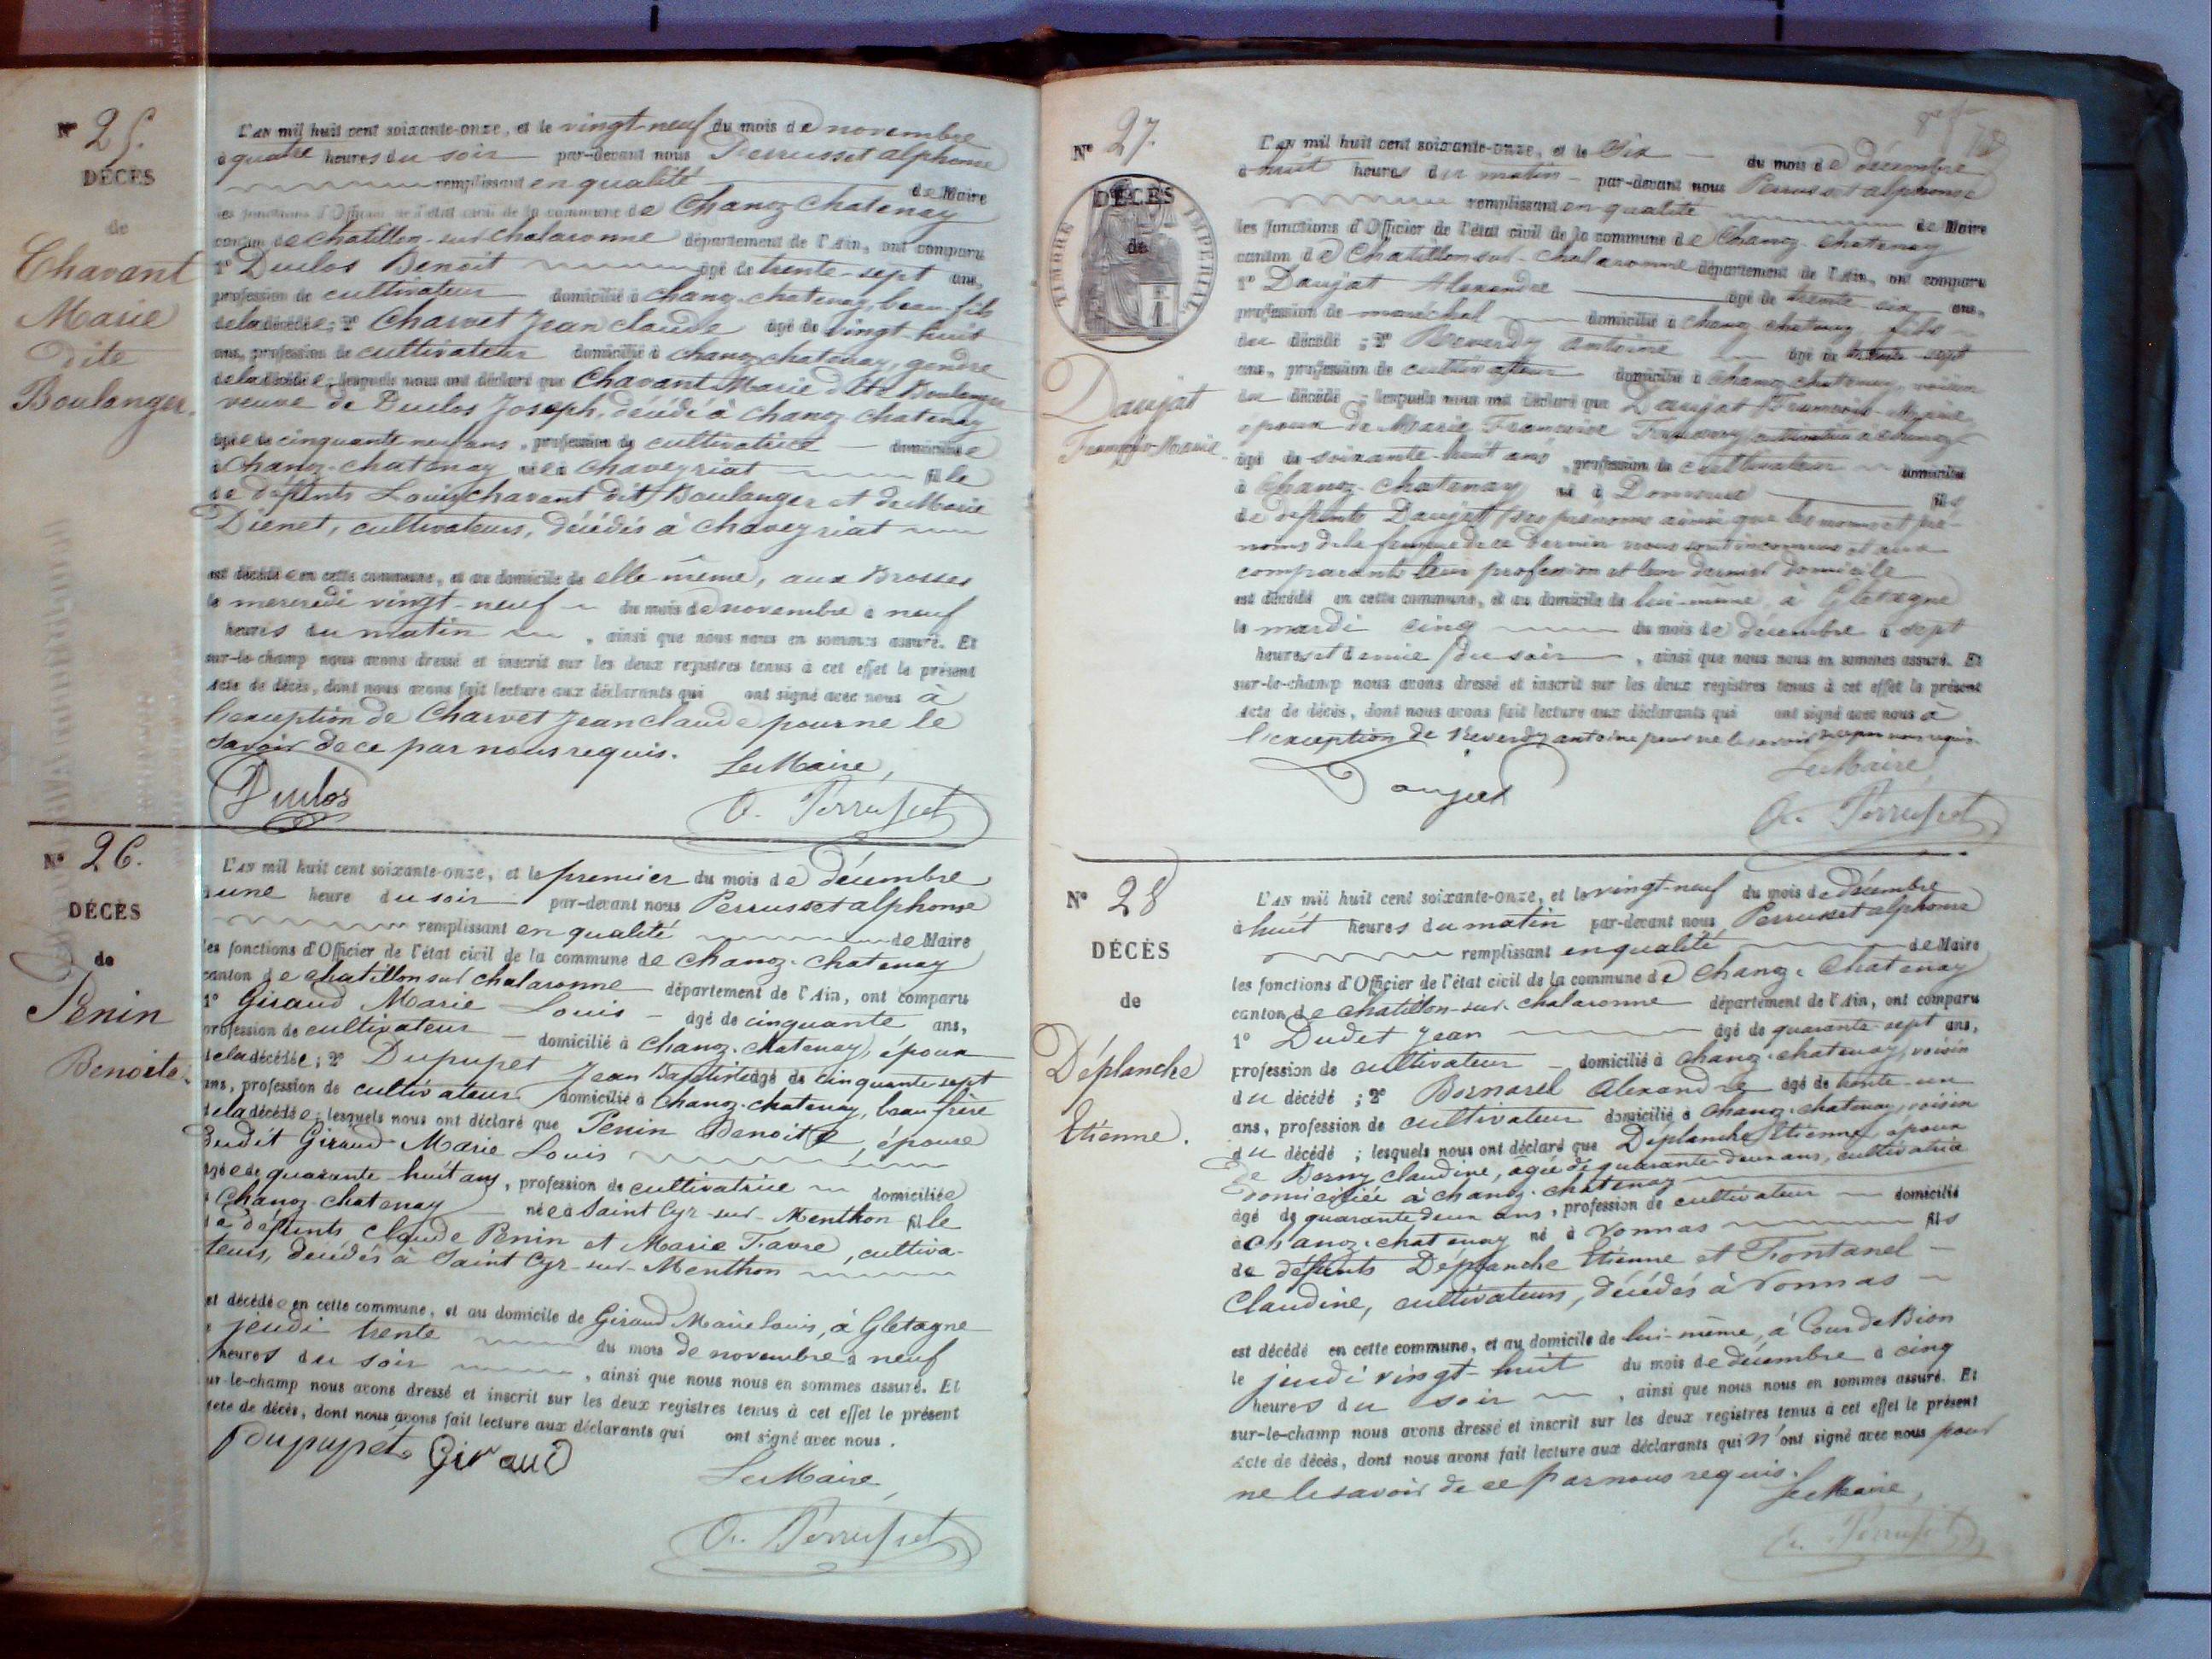 Nº 25.
DÉCÈS
de
Chavant
Marie
dite
Boulanger.
L'AN mil huit cent soixante-onze, et le vingt-neuf du mois de novembre
à quatre heures du soir par-devant nous Perrusset alphonse
remplissant en qualité de Maire
les fonctions d'Officier de l'état civil de la commune de Chanoz-Chatenay
canton de Chatillon-sur-chalaronne département de l'Ain, ont comparu
1º Duclos Benoit âgé de trente-sept ans,
profession de cultivateur domicilié à Chanoz-chatenay, beau-fils
de la décédée; 2º Charvet Jean claude âgé de vingt-huit
ans, profession de cultivateur domicilié à Chanoz-chatenay, gendre
de la décédée; lesquels nous ont déclaré que Chavant Marie dite Boulanger
veuve de Duclos Joseph, décédé à Chanoz-chatenay
âgée de cinquante neuf ans, profession de cultivatrice domiciliée
à Chanoz-chatenay née à Chaveyriat fille
de défunts Louis chavant dit Boulanger et de Marie
Dienet, cultivateurs, décédés à Chaveyriat
est décédée en cette commune, et au domicile de elle-même, aux Brosses
le mercredi vingt-neuf du mois de novembre à neuf
heures du matin, ainsi que nous nous en sommes assuré. Et
sur-le-champ nous avons dressé et inscrit sur les deux registres tenus à cet effet le présent
acte de décès, dont nous avons fait lecture aux déclarants qui ont signé avec nous à
l'exception de Charvet Jean claude pour ne le
savoir de ce par nous requis.
Le Maire,
Duclos
A. Perrusset
Nº 26.
DÉCÈS
de
Penin
Benoite.
L'AN mil huit cent soixante-onze, et le premier du mois de décembre
à une heure du soir par-devant nous Perrusset alphonse
remplissant en qualité de Maire
les fonctions d'Officier de l'état civil de la commune de Chanoz-Chatenay
canton de chatillon sur chalaronne département de l'Ain, ont comparu
1º Giraud Marie Louis âgé de cinquante ans,
profession de cultivateur domicilié à Chanoz-chatenay, époux
de la décédée; 2º Dupupet Jean Baptiste âgé de cinquante sept
ans, profession de cultivateur domicilié à Chanoz-chatenay, beau frère
de la décédée; lesquels nous ont déclaré que Penin Benoite, épouse
dudit Giraud Marie Louis
âgée de quarante-huit ans, profession de cultivatrice domiciliée
à Chanoz-chatenay née à Saint Cyr-sur-Menthon fille
de défunts Claude Penin et Marie Favre, cultiva-
teurs, décédés à Saint Cyr-sur-Menthon
est décédée en cette commune, et au domicile de Giraud Marie Louis, à Gletagne
le jeudi trente du mois de novembre à neuf
heures du soir, ainsi que nous nous en sommes assuré. Et
sur-le-champ nous avons dressé et inscrit sur les deux registres tenus à cet effet le présent
acte de décès, dont nous avons fait lecture aux déclarants qui ont signé avec nous.
Dupupet Giraud
Le Maire,
A. Perrusset
Nº 27.
TIMBRE IMPÉRIAL
DÉCÈS
de
Daujat
François-Marie
L'AN mil huit cent soixante-onze, et le Six du mois de décembre
à huit heures du matin par-devant nous Perrusset alphonse
remplissant en qualité de Maire
les fonctions d'Officier de l'état civil de la commune de Chanoz-Chatenay
canton de Chatillon sur-chalaronne département de l'Ain, ont comparu
1º Daujat Alexandre âgé de trente six ans,
profession de maréchal domicilié à Chanoz chatenay fils
du décédé; 2º Reverdy antoine âgé de trente-sept
ans, profession de cultivateur domicilié à Chanoz-chatenay, voisin
du décédé; lesquels nous ont déclaré que Daujat François-Marie
époux de Marie Françoise cultivatrice à Chanoz
âgé de soixante-huit ans, profession de cultivateur domicilié
à Chanoz-Chatenay né à fils
de défunts Daujat ses prénoms ainsi que les noms et pré-
noms de la femme de ce dernier nous sont inconnus et aux
comparants leur profession et leur dernier domicile
est décédé en cette commune, et au domicile de lui-même, à Gletagne
le mardi cinq du mois de décembre à sept
heures et demie du soir, ainsi que nous nous en sommes assuré. Et
sur-le-champ nous avons dressé et inscrit sur les deux registres tenus à cet effet le présent
acte de décès, dont nous avons fait lecture aux déclarants qui ont signé avec nous à
l'exception de Reverdy antoine pour ne le savoir de ce par nous requis.
Le Maire,
Daujat
A. Perrusset
Nº 28
DÉCÈS
de
Déplanche
Etienne.
L'AN mil huit cent soixante-onze, et le vingt-neuf du mois de décembre
à huit heures du matin par-devant nous Perrusset alphonse
remplissant en qualité de Maire
les fonctions d'Officier de l'état civil de la commune de Chanoz-Chatenay
canton de chatillon-sur-chalaronne département de l'Ain, ont comparu
1º Dudet Jean âgé de quarante-sept ans,
profession de cultivateur domicilié à Chanoz-chatenay, voisin
du décédé; 2º Bornarel Alexandre âgé de trente-un
ans, profession de cultivateur domicilié à Chanoz-chatenay, voisin
du décédé; lesquels nous ont déclaré que Déplanche Etienne époux
de Borny Claudine, âgée de quarante-deux ans, cultivatrice
domiciliée à Chanoz-chatenay
âgé de quarante deux ans, profession de cultivateur domicilié
à Chanoz-chatenay né à Vonnas fils
de défunts Déplanche Etienne et Fontanel
Claudine, cultivateurs, décédés à Vonnas
est décédé en cette commune, et au domicile de lui-même, à Cour de Bion
le jeudi vingt-huit du mois de décembre à cinq
heures du soir, ainsi que nous nous en sommes assuré. Et
sur-le-champ nous avons dressé et inscrit sur les deux registres tenus à cet effet le présent
acte de décès, dont nous avons fait lecture aux déclarants qui n'ont signé avec nous pour
ne le savoir de ce par nous requis.
Le Maire,
A. Perrusset